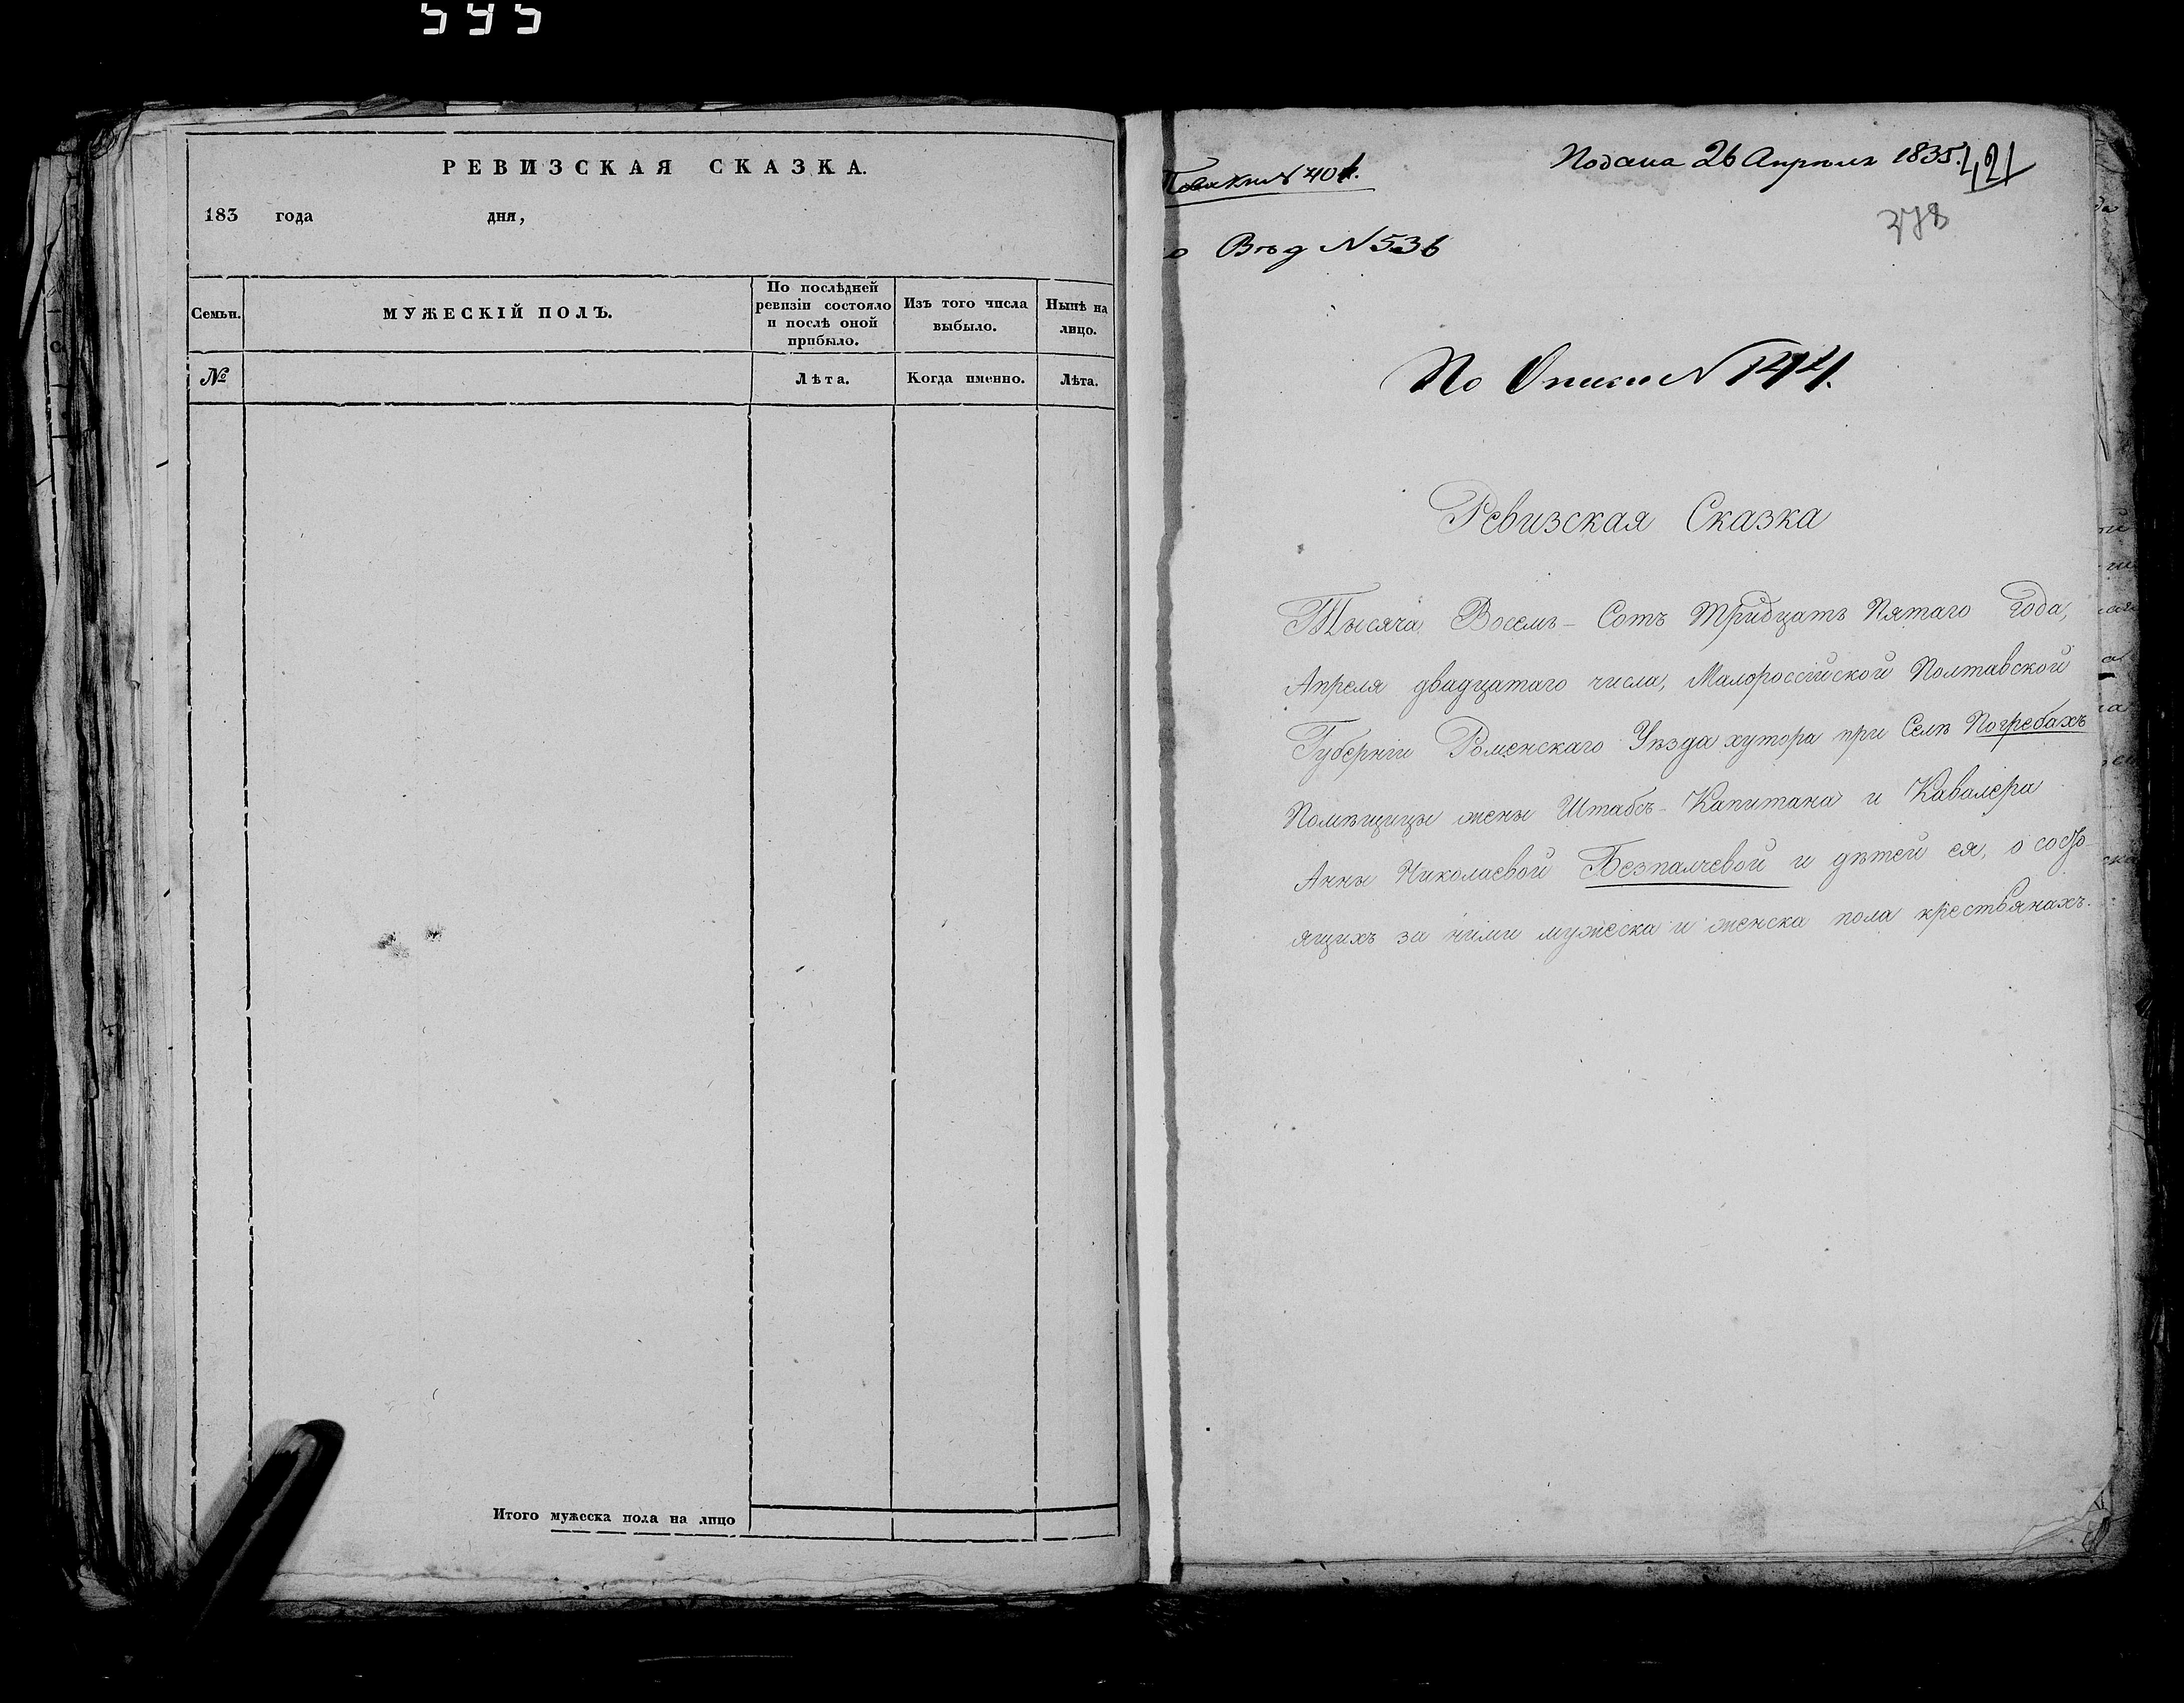 595
РЕВИЗСКАЯ СКАЗКА.
183 года дня,
Семьи.
МУЖЕСКІЙ ПОЛЪ.
По послѣдней
ревизіи состояло
и послѣ оной
прибыло.
Изъ того числа
выбыло.
Нынѣ на
лицо.
№
Лѣта.
Когда именно.
Лѣта.
Итого мужеска пола на лицо
Подана 26 Апреля 1835.
421
№ 401.
378
Вѣд №536
По Описи №144.
Ревизская Сказка
Тысяча Восемь-Сотъ Тридцать Пятаго Года,
Апреля двадцатаго числа, Малороссійской Полтавской
Губерніи Роменскаго Уѣзда хутора при Селѣ Погребахъ
Помѣщицы жены Штабсъ-Капитана и Кавалера
Анны Николаевой Безпалчевой и дѣтей ея, о состо-
ящихъ за ними мужеска и женска пола крестьянахъ.